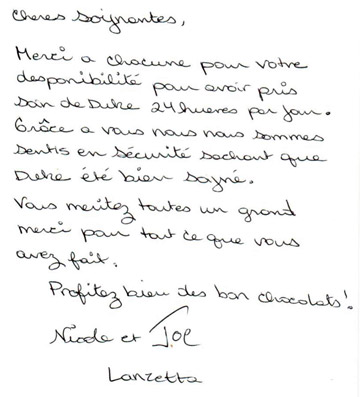 Cheres Soignantes,
Merci a chacune pour votre
desponibilité pour avoir pris
soin de Duke 24 hueres par jour.
Grâce a vous nous nous sommes
sentis en sécurité sachant que
Duke été bien soyné.
Vous meritez toutes un grand
merci pour tout ce que vous
avez fait.
Profitez bien des bon chocolats!
Nicole et Joe
Lanzetta